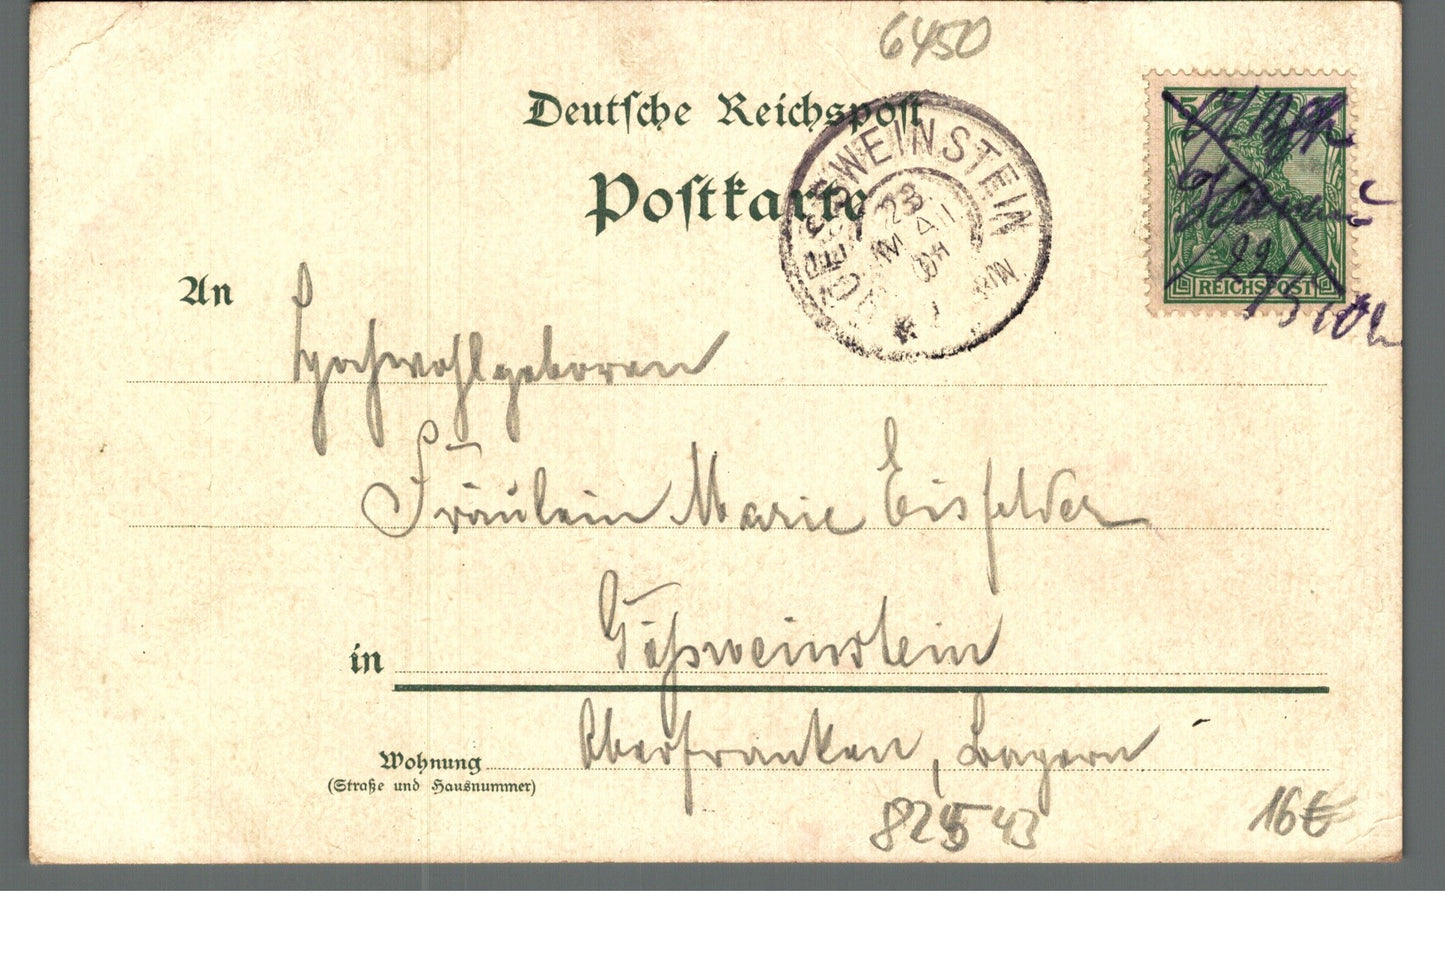 6450
Deutsche Reichspost
Postkarte
GOESSWEINSTEIN
23
MAI
NM
5
REICHSPOST
22/5
An
Hochwohlgeboren
Fräulein Marie Eisfelder
in Gößweinstein
Wohnung Oberfranken, Bayern
(Straße und Hausnummer)
16€